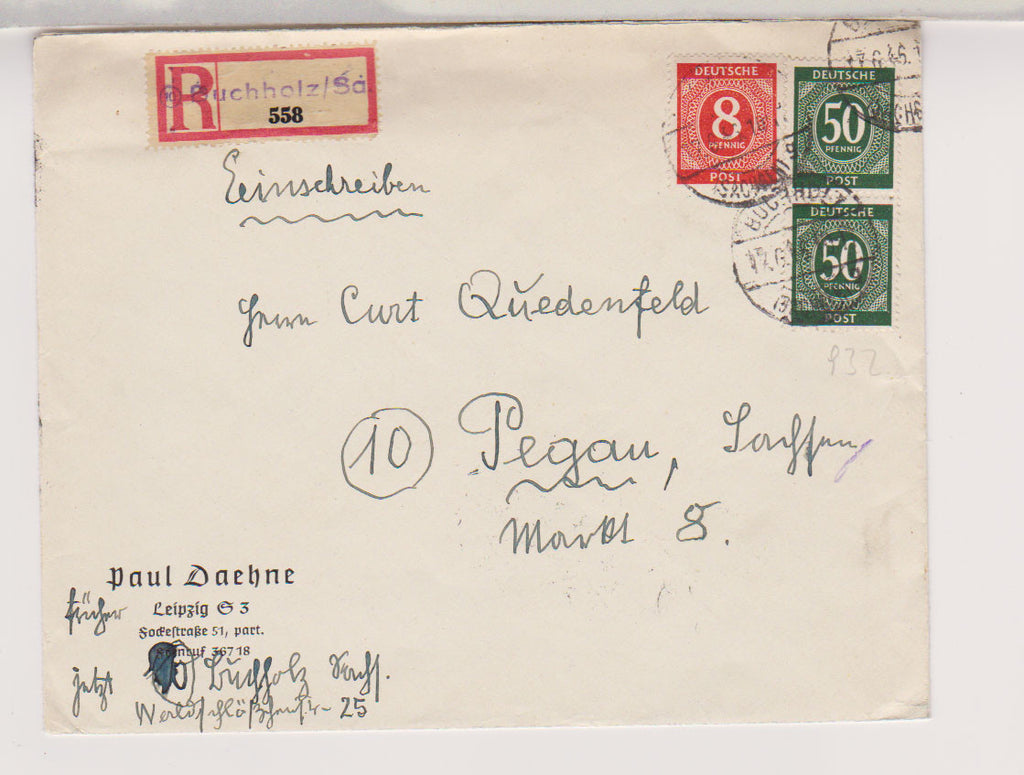 R
(10) Buchholz/Sa.
558
DEUTSCHE
8
PFENNIG
POST
DEUTSCHE
50
PFENNIG
POST
DEUTSCHE
50
PFENNIG
POST
17.6.46.
BUCHHOLZ
Einschreiben
Herrn Curt Quedenfeld
932
(10) Pegau, Sachsen
Markt 8.
Paul Daehne
früher Leipzig S 3
Fockestraße 51, part.
Fernruf 36718
jetzt (10) Buchholz Sachs.
Waldschlößchenstr. 25